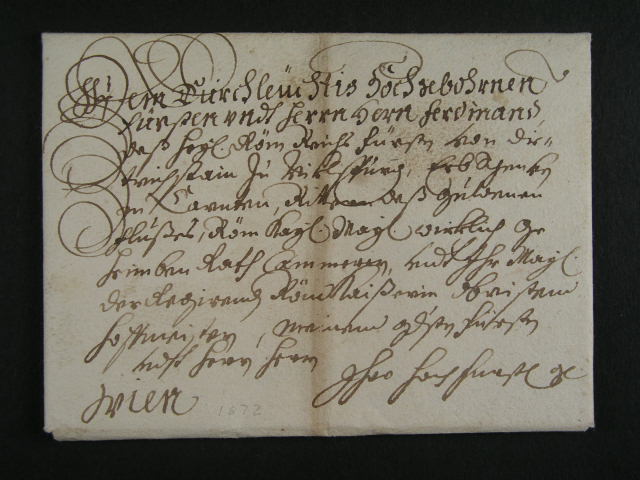 Dem Durchleüchtig Hochgebohrnen
Fürsten undt Herrn Herrn Ferdinand,
deß heyl: Röm: Reichs Fürsten von Die=
trichstain zu Niklspurg, Erb Schenken
in Carnten, Rittern deß Guldenen
Flüßes, Röm: Kayl: Mayl: wirklich Ge
heimben Rath Cammerern, undt Ihr Mayl:
der Regirendten Röm: Kaißerin Obristem
Hoffmeistern, Meinem gdsten Fürsten
undt Herrn Herrn
Wien
1672